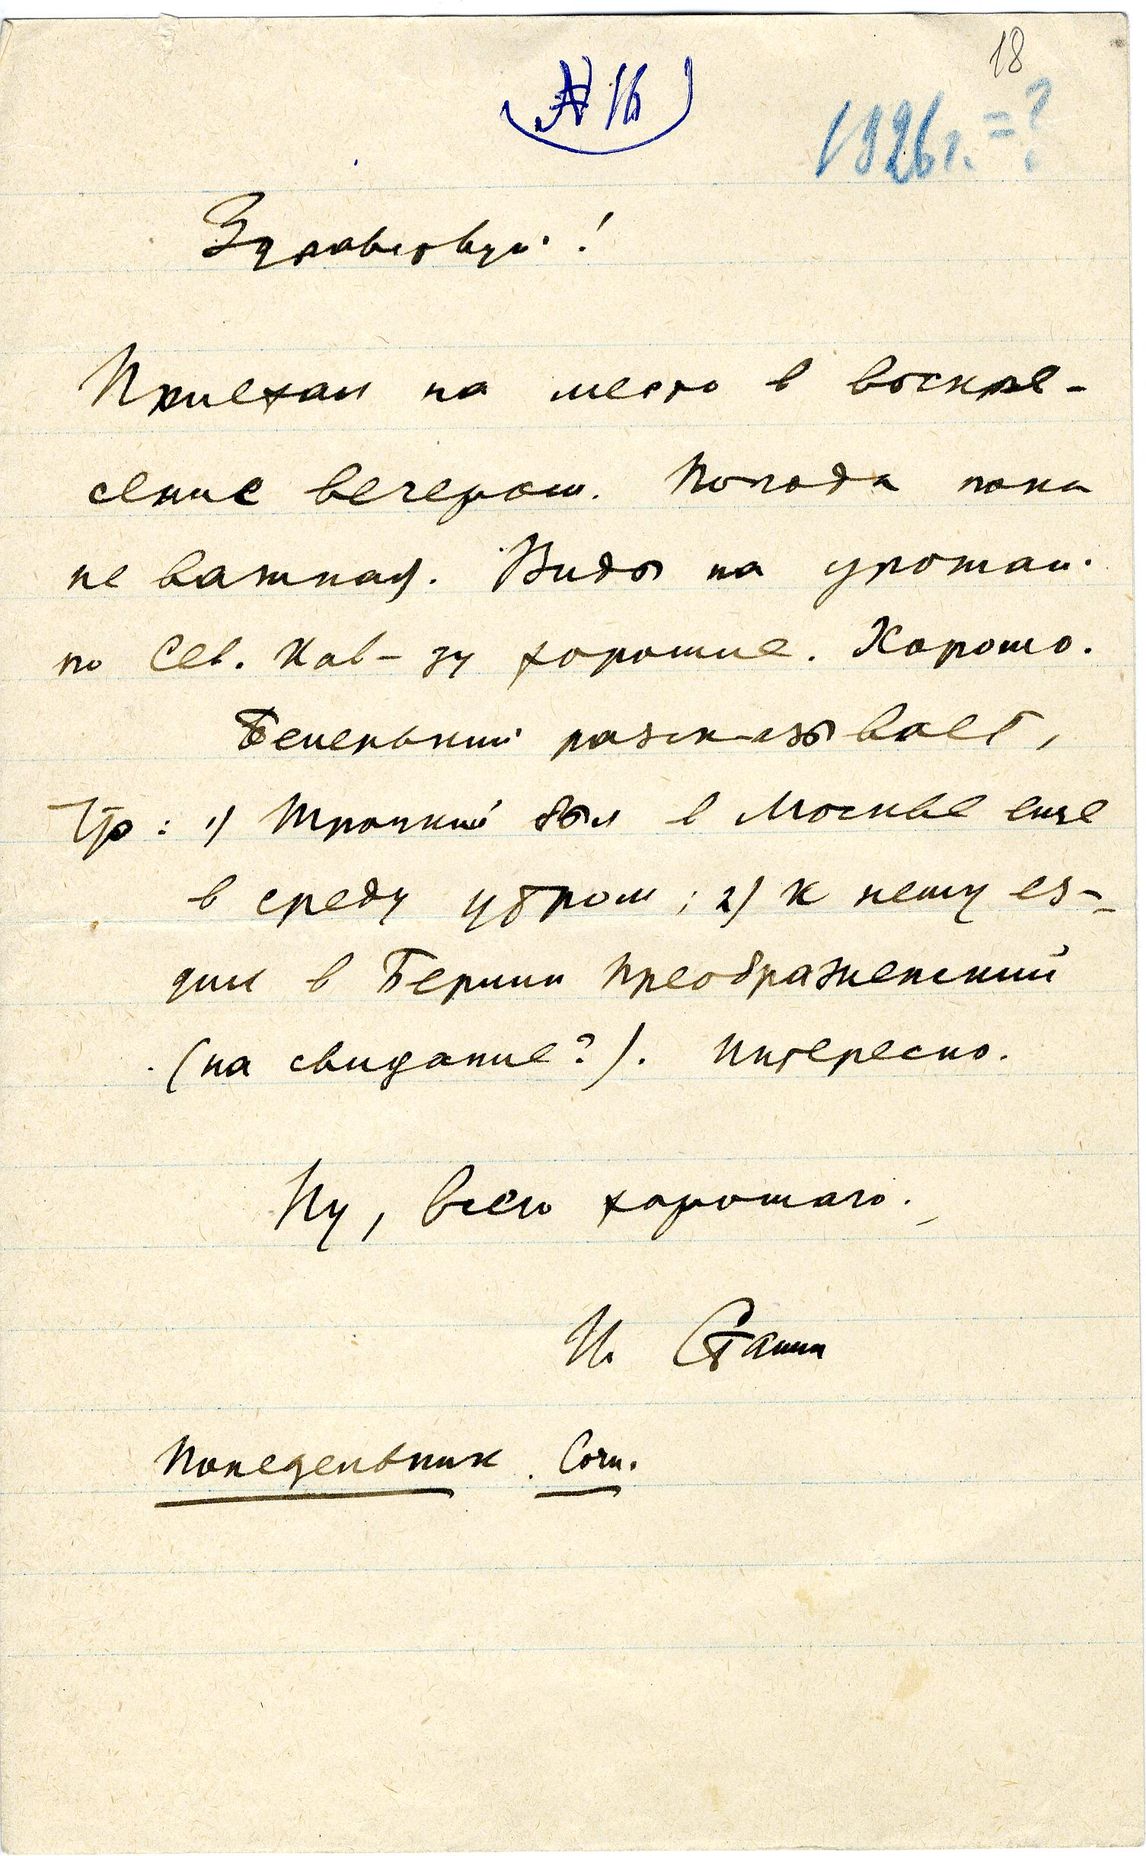 18
№ 16
1926 г. = ?
Здравствуй!
Приехал на место в воскре-
сение вечером. Погода пока
не важная. Виды на урожай
по Сев. Кав-зу хорошие. Хорошо.
Беленький рассказывает,
что: 1) Троцкий был в Москве еще
в среду утром; 2) к нему ез-
дил в Берлин Преображенский
(на свидание?). Интересно.
Ну, всего хорошаго.
И. Сталин
Понедельник. Сочи.